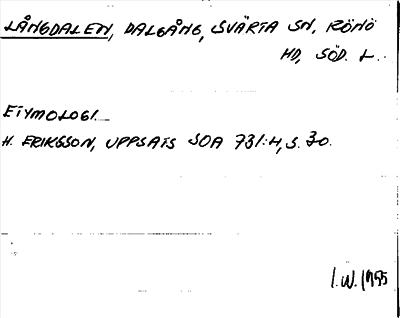 LÅNGDALEN, DALGÅNG, SVÄRTA SN, RÖNÖ
HD, SÖD. L.
ETYMOLOGI
H. ERIKSSON, UPPSATS SOA 731:4, S. 30.
I.W. 1955